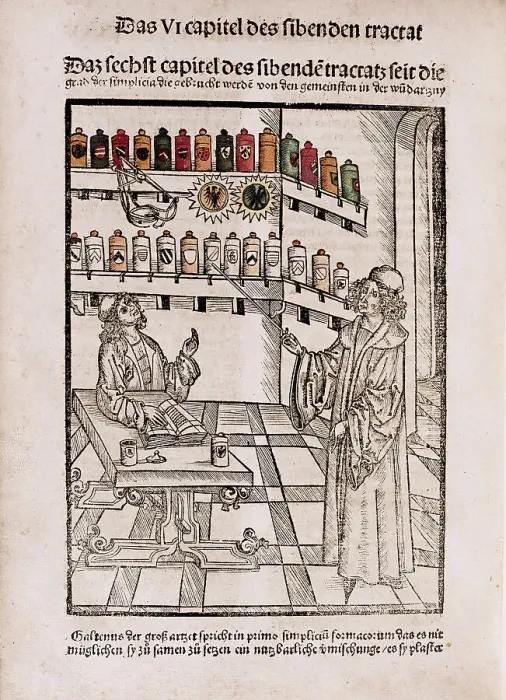 Das VI capitel des sibenden tractat
Daz sechst capitel des sibendē tractatz seit die
grad der simplicia die gebrucht werdē von den gemeinsten in der wūdartzny
Galienus der groß artzet spricht in primo simpliciū formacorum das es nit
müglichen sy zů samen zů setzen ein nutzbarliche v̄mischunge / es sy plaster